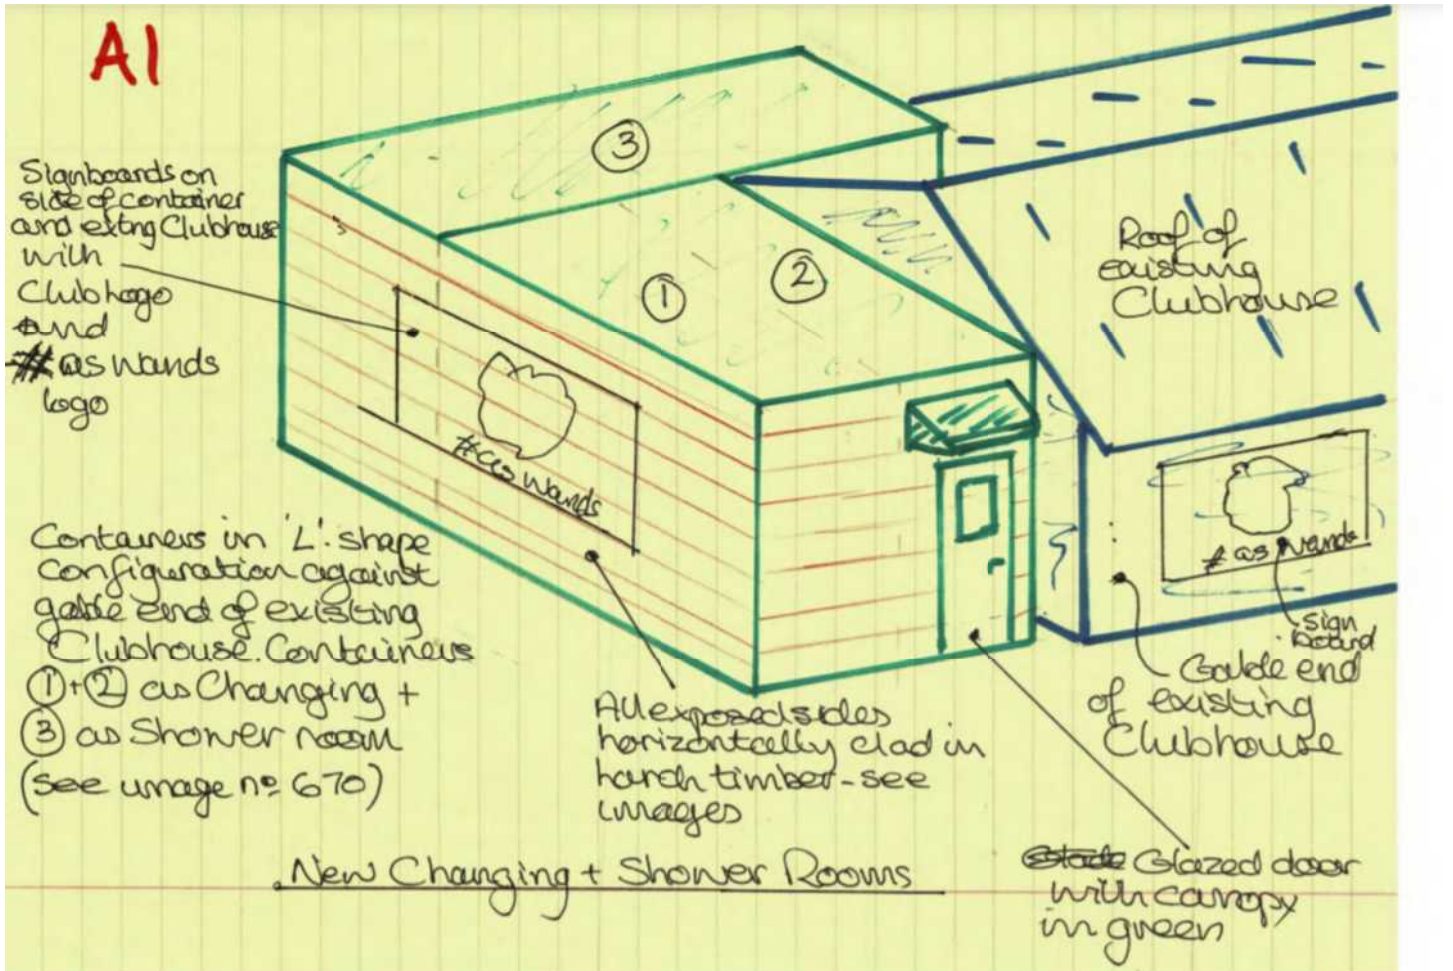 A1
Signboards on
side of container
and extng Clubhouse
with
Club Logo
and
# as Wands
logo
3
1
2
Roof of
existing
Clubhouse
# as Wands
# as Wands
Sign
Board
Containers in 'L' shape
configuration against
gable end of existing
Clubhouse. Containers
1 + 2 as Changing +
3 as Shower room
(see image nº 670)
All exposed sides
horizontally clad in
larch timber - see
images
Gable end
of existing
Clubhouse
Glazed door
with canopy
in green
New Changing + Shower Rooms